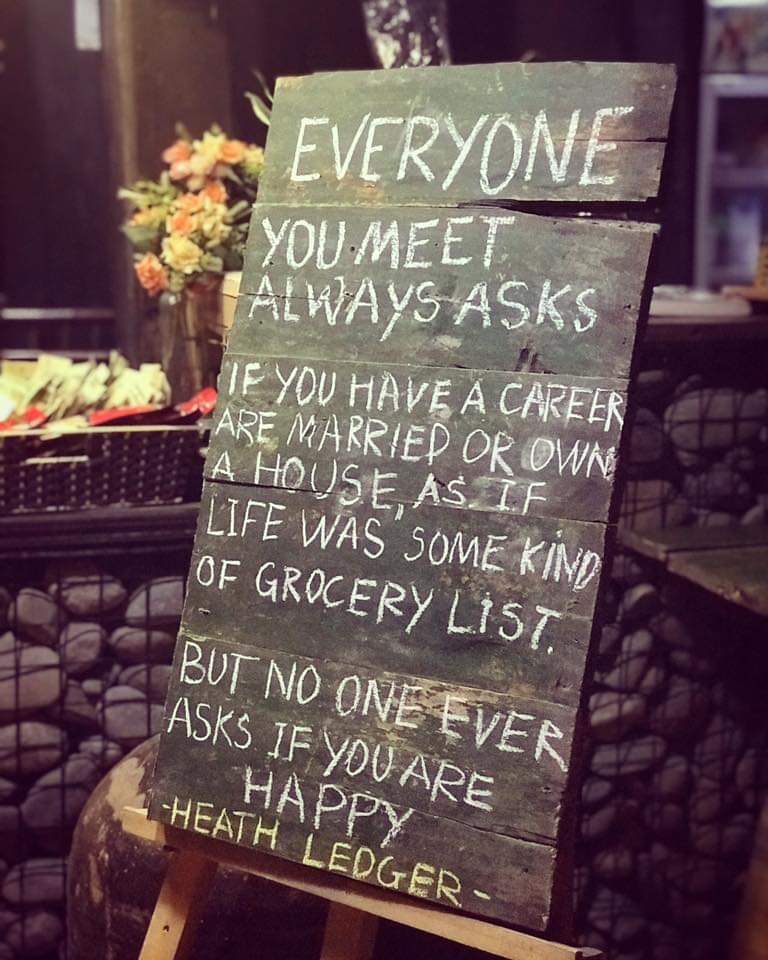 EVERYONE
YOU MEET
ALWAYS ASKS
IF YOU HAVE A CAREER
ARE MARRIED OR OWN
A HOUSE, AS IF
LIFE WAS SOME KIND
OF GROCERY LIST.
BUT NO ONE EVER
ASKS IF YOU ARE
HAPPY
-HEATH LEDGER-